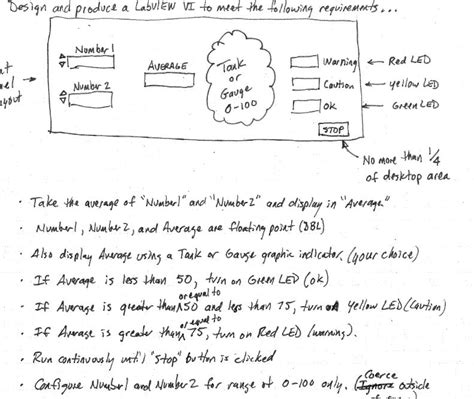 Design and produce a LabVIEW VI to meet the following requirements...
Number 1
Number 2
AVERAGE
Tank
or
Gauge
0-100
Warning
Caution
OK
STOP
Red LED
yellow LED
Green LED
No more than 1/4
of desktop area
• Take the average of "Number1" and "Number2" and display in "Average."
• Number1, Number2, and Average are floating point (DBL)
• Also display Average using a Tank or Gauge graphic indicator. (your choice)
• If Average is less than 50, turn on Green LED (OK)
• If Average is greater than or equal to 50 and less than 75, turn on yellow LED (Caution)
• If Average is greater than or equal to 75, turn on Red LED (warning).
• Run continuously until "Stop" button is clicked
• Configure Number1 and Number2 for range of 0-100 only. (Ignore Coerce outside